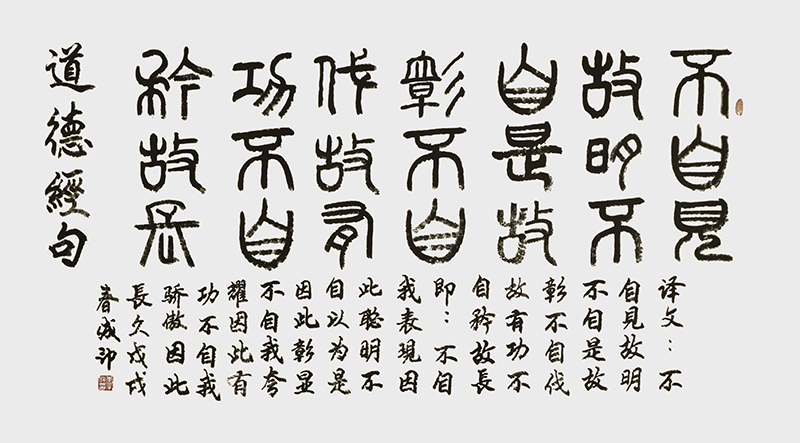 不自見
故明不
自是故
彰不自
伐故有
功不自
矜故長
道德經句
译文：不
自見故明
不自是故
彰不自伐
故有功不
自矜故長
即：不自
我表現因
此聰明不
自以为是
因此彰显
不自我夸
耀因此有
功不自我
骄傲因此
長久戊戌
春成印